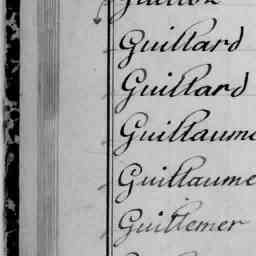 Guillard
Guillard
Guillaume
Guillaume
Guillemer